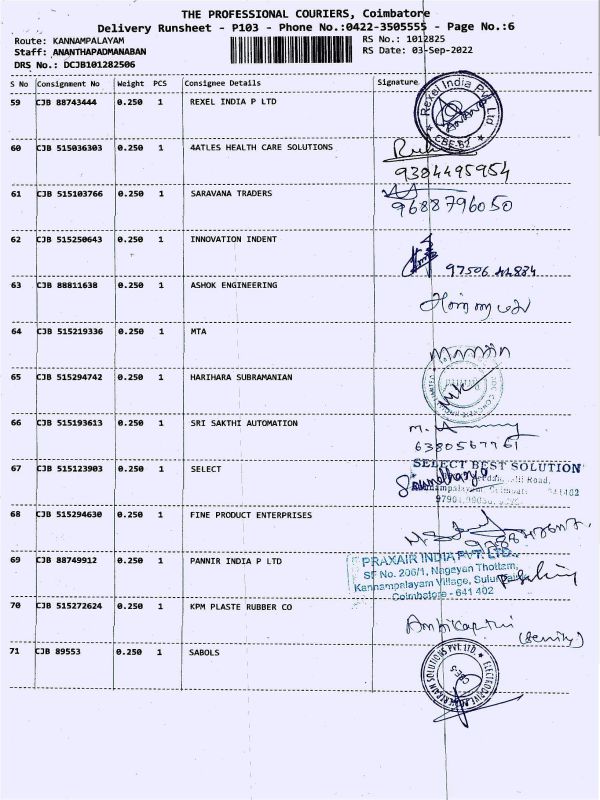 THE PROFESSIONAL COURIERS, Coimbatore
Delivery Runsheet - P103 - Phone No.:0422-3505555 - Page No.:6
Route: KANNAMPALAYAM
RS No.: 1012825
Staff: ANANTHAPADMANABAN
RS Date: 03-Sep-2022
DRS No.: DCJB101282506
S No Consignment No Weight PCS Consignee Details Signature
59 CJB 88743444 0.250 1 REXEL INDIA P LTD
Rexel India Pvt Ltd
CBE-62
60 CJB 515036303 0.250 1 4ATLES HEALTH CARE SOLUTIONS
9384495954
61 CJB 515103766 0.250 1 SARAVANA TRADERS
9688796050
62 CJB 515250643 0.250 1 INNOVATION INDENT
97506 44884
63 CJB 88811638 0.250 1 ASHOK ENGINEERING
64 CJB 515219336 0.250 1 MTA
65 CJB 515294742 0.250 1 HARIHARA SUBRAMANIAN
66 CJB 515193613 0.250 1 SRI SAKTHI AUTOMATION
6380567761
67 CJB 515123903 0.250 1 SELECT
SELECT BEST SOLUTION
Soundharya
Road,
641402
68 CJB 515294630 0.250 1 FINE PRODUCT ENTERPRISES
69 CJB 88749912 0.250 1 PANNIR INDIA P LTD
PRAXAIR INDIA PVT. LTD.,
SF No. 206/1, Nagayan Thottam,
Kannampalayam Village, Sulur
Coimbatore - 641 402
70 CJB 515272624 0.250 1 KPM PLASTE RUBBER CO
71 CJB 89553 0.250 1 SABOLS
SOLUTIONS PVT. LTD